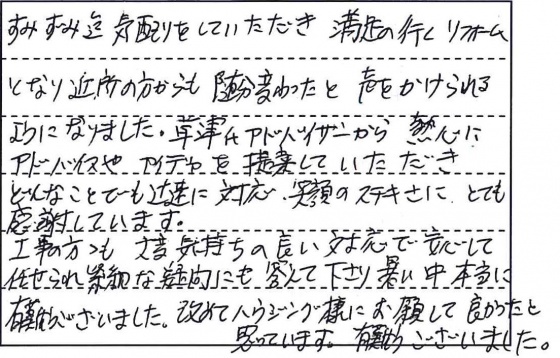 すみずみ迄 気配りをしていただき 満足の行く リフォーム
となり近所の方からも 随分変わったと 声をかけられる
ようになりました。草津 アドバイザーから 熱心に
アドバイスや アイデャを 提案して いただき
どんなことでも 迅速に 対応 笑顔のステキさに とても
感謝しています。
工事の方々も 大変 気持ちの良い 対応で 安心して
任せられ 些細な疑問にも 答えて下さり 暑い中 本当に
有難うございました。改めて ハウジング様に お願して 良かったと
思っています。有難う ございました。